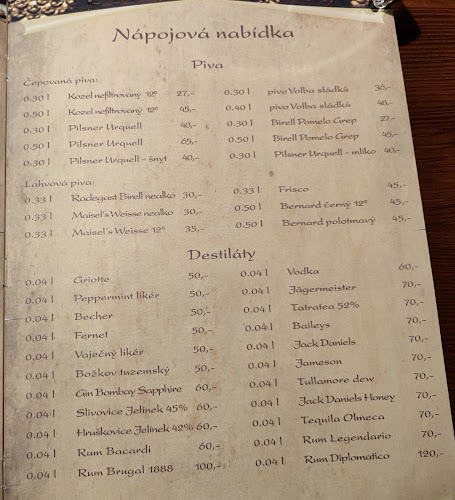 Nápojová nabídka
Piva
Čepovaná piva:
0.30 l Kozel nefiltrovaný 12° 27,-
0.50 l Kozel nefiltrovaný 12° 45,-
0.30 l Pilsner Urquell 40,-
0.50 l Pilsner Urquell 65,-
0.30 l Pilsner Urquell - šnyt 40,-
0.30 l pivo Volba sládků 36,-
0.40 l pivo Volba sládků 46,-
0.30 l Birell Pomelo Grep 27,-
0.50 l Birell Pomelo Grep 45,-
0.30 l Pilsner Urquell - mlíko 40,-
Lahvová piva:
0.33 l Radegast Birell nealko 30,-
0.33 l Maisel's Weisse nealko 30,-
0.33 l Maisel's Weisse 12° 35,-
0.33 l Frisco 45,-
0.50 l Bernard černý 12° 45,-
0.50 l Bernard polotmavý 45,-
Destiláty
0.04 l Griotte 50,-
0.04 l Peppermint likér 50,-
0.04 l Becher 50,-
0.04 l Fernet 50,-
0.04 l Vaječný likér 50,-
0.04 l Božkov tuzemský 50,-
0.04 l Gin Bombay Sapphire 60,-
0.04 l Slivovice Jelínek 45% 60,-
0.04 l Hruškovice Jelínek 42% 60,-
0.04 l Rum Bacardi 60,-
0.04 l Rum Brugal 1888 100,-
0.04 l Vodka 60,-
0.04 l Jägermeister 70,-
0.04 l Tatratea 52% 70,-
0.04 l Baileys 70,-
0.04 l Jack Daniels 70,-
0.04 l Jameson 70,-
0.04 l Tullamore dew 70,-
0.04 l Jack Daniels Honey 70,-
0.04 l Tequila Olmeca 70,-
0.04 l Rum Legendario 70,-
0.04 l Rum Diplomatico 120,-